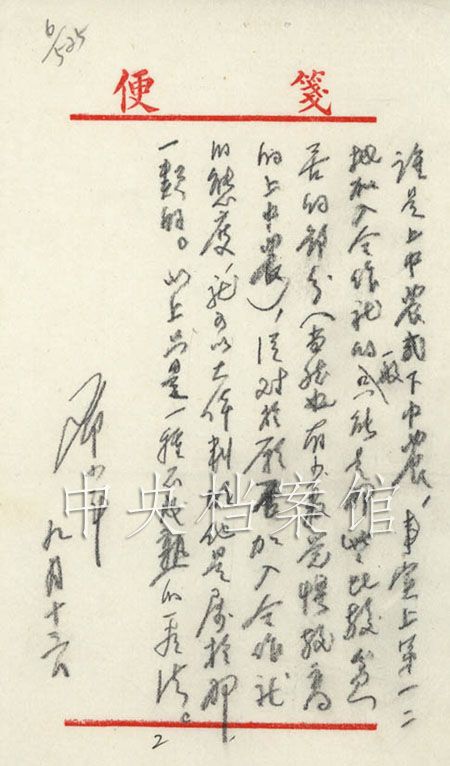 便 箋
誰是上中農或下中農，事实上第一二
批加入合作社的一般只能是那些比較貧
苦的部分（当然也有少数觉悟較高
的上中農），從对於愿否加入合作社
的態度就可以大体判断他是属於那
一類的。以上只是一種不成熟的看法。
邓小平
九月十
2
中央档案馆